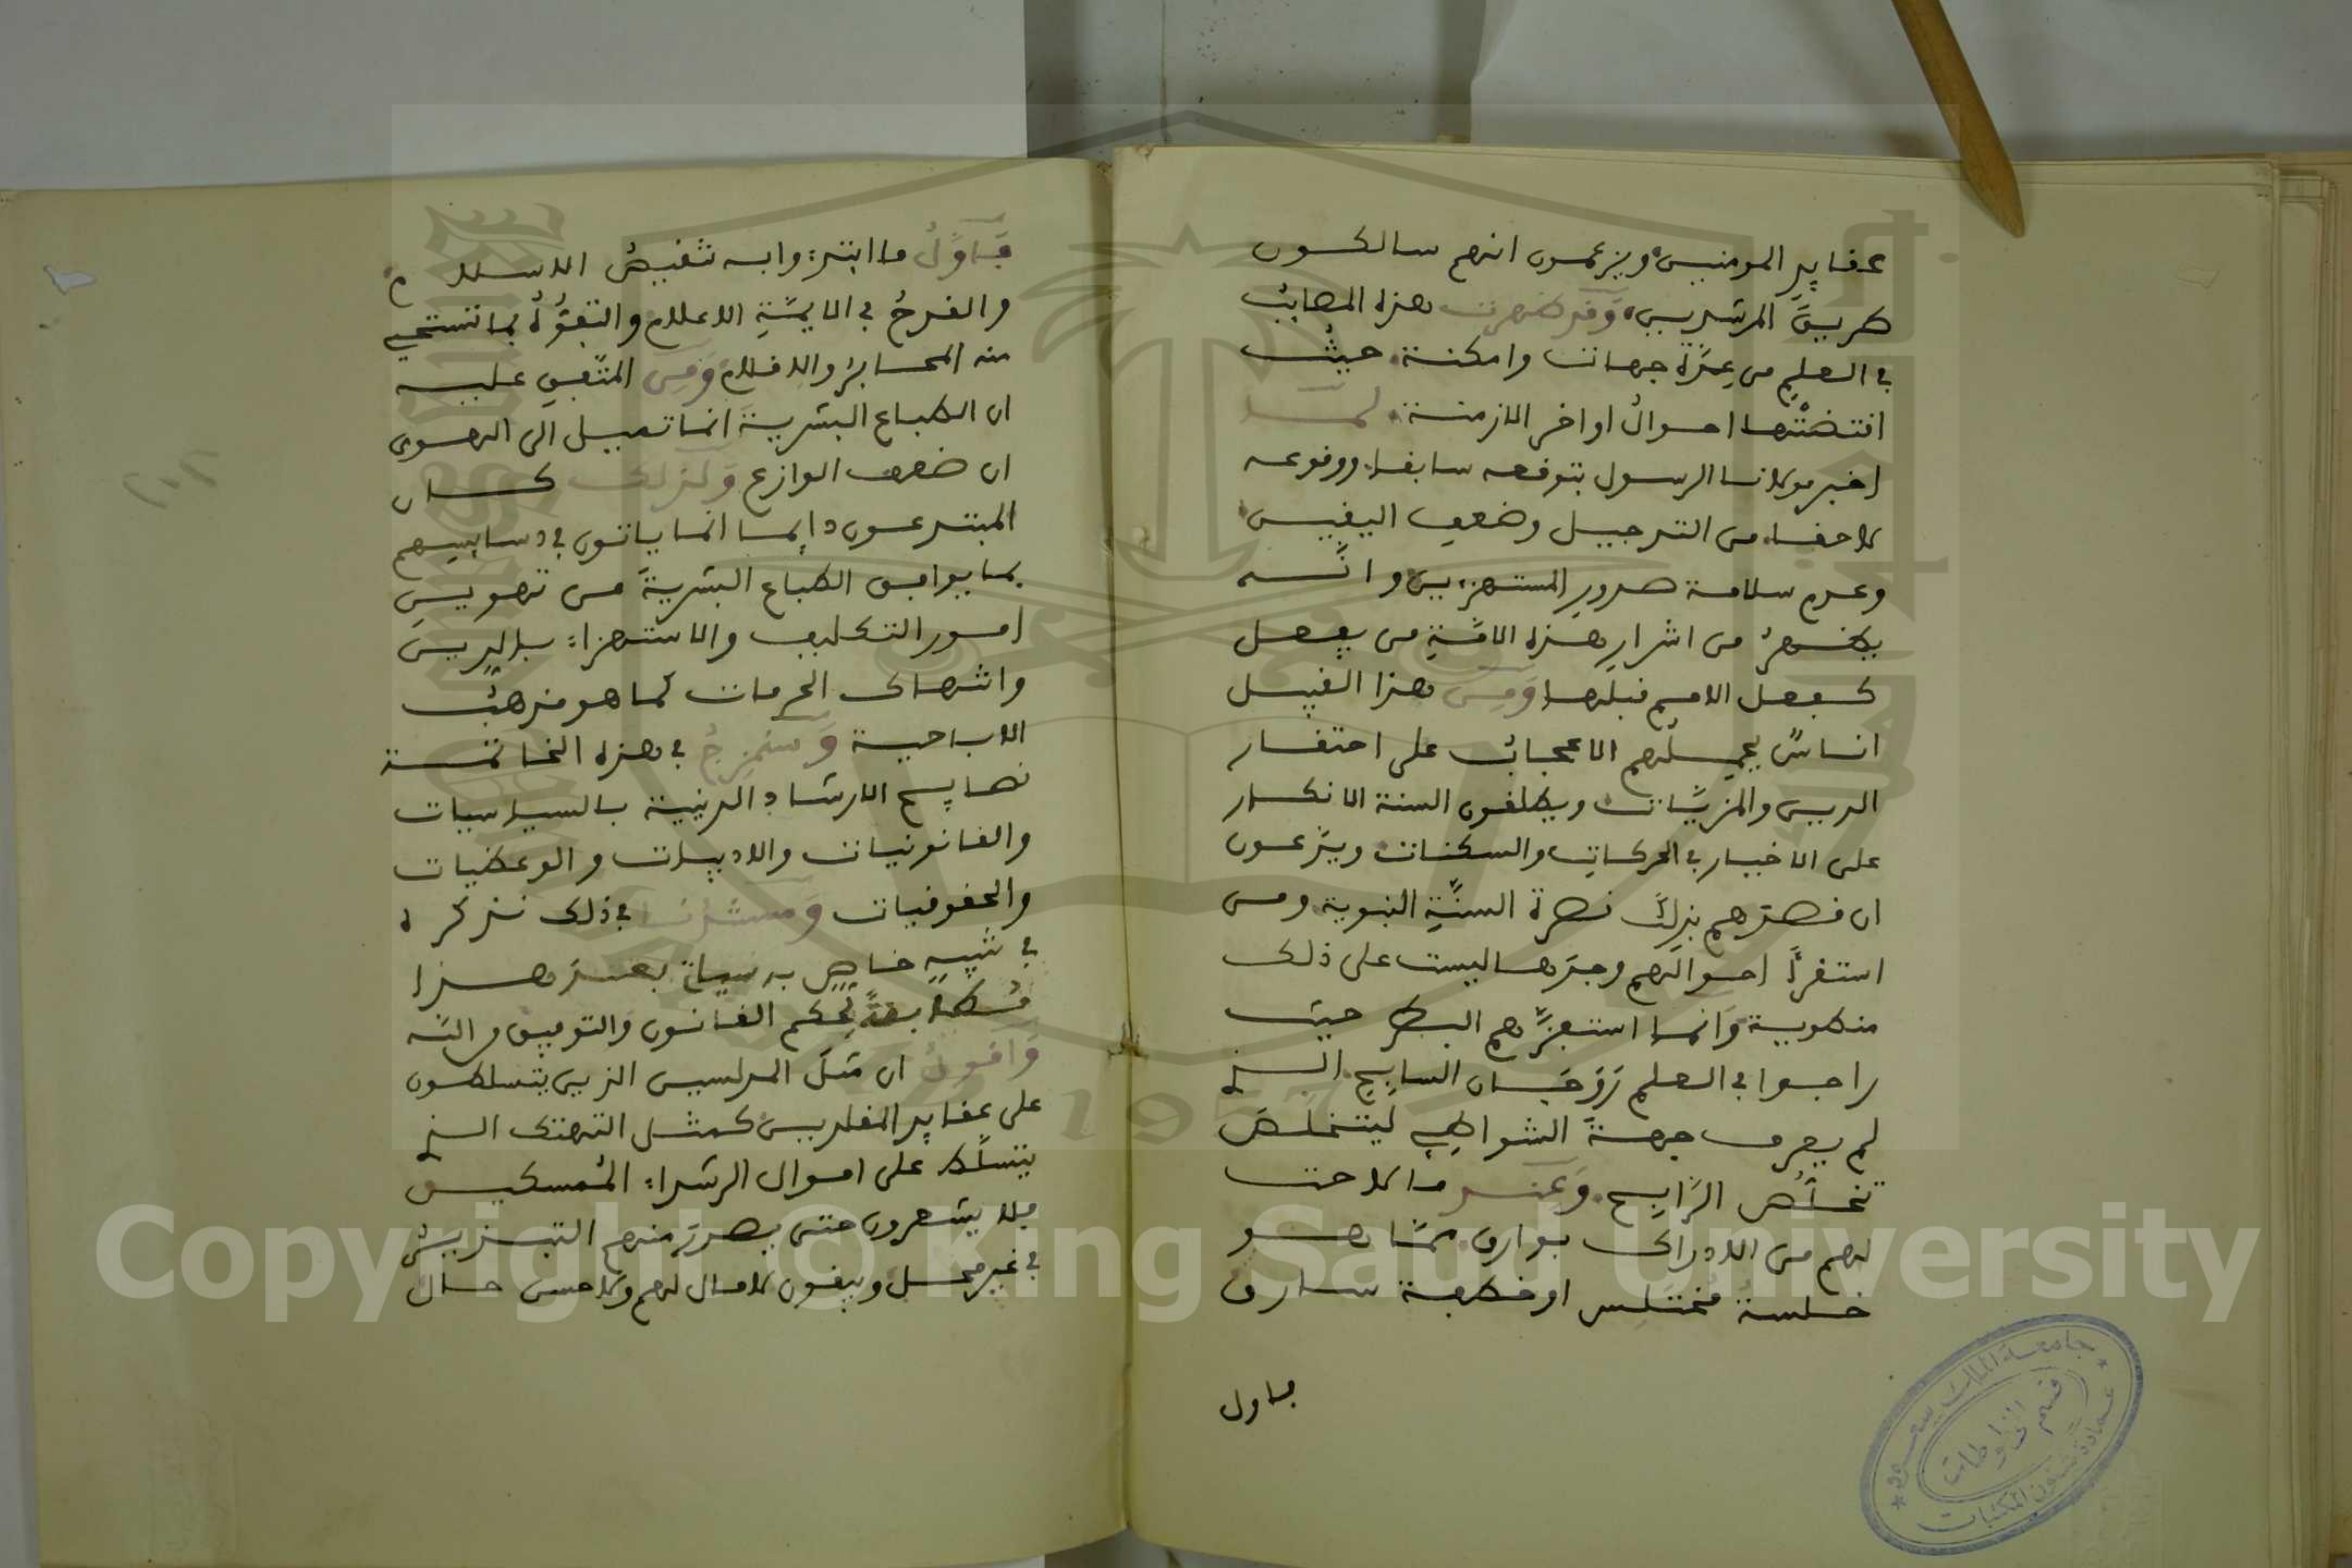 عقايدِ المومنين ويزعمون انهم سالكون
طريقَ المرشدين، وَقد ظهرت هذه المصائبُ
في العلمِ من عِدَّة جهات وامكنة. حيثُ
اقتضتْها احوالُ اواخر الازمنة. لمَّا
اخبر مولانا الرسول بتوقعه سابقا. ووقوعه
لاحقا. من الترجيل وضعفِ اليقين
وعدم سلامة صدورِ المستهزءين وانَّه
يظهرُ من اشرارِ هذه الامَّةِ من يفعل
كفعل الامم قبلها وَمِن هذا القبيل
اناسٌ يحملهم الاعجابُ على احتقار
الدين والمزيَّات ويطلقون السنة الانكار
على الاخيار في الحركاتِ والسكنات ويزعمون
ان قصدهم بذلك نصرة السنَّةِ النبوية. ومن
استقرأ احوالَهم وجدها ليست على ذلك
منطوية وَانما استفزَّهم البطر حيث
راحوا في العلم زَوَغان السايح. الذي
لم يعرف جهةَ الشواطِي ليتخلصَ
تخلُّص الرَّابح. وَعند ما لاحت
لهم من الادراك بوارق ممَّا هو
خلسةُ مُختلس او خطفة سارق
فاول
فَاَوَّلُ ما ابتدءوا به تنقيصُ الاسلام
والقدحُ في الايمَّةِ الاعلام والتفوُّهُ بما تستحيي
منه المحابرُ والاقلام وَمِن المتَّفقِ عليه
ان الطباع البشريةَ انما تميل الى الهوى
ان ضعف الوازع وَلذلك كان
المبتدعون دايما انما ياتون في دسايسِهم
بما يوافق الطباع البشريةَ من تهوينِ
امور التكليف والاستهزاء بالدِين
وانتهاك الحرمات كما هو مذهبُ
الاباحية وَسنمزِجُ في هذه الخاتمة
نصايح الارشاد الدينية بالسياسيات
والقانونيات والادبيات والوعظيات
والحقوقيات وَمستندُنا في ذلك نذكره
في تنبيهٍ خاصٍّ به سياتي بعد هذا
مُطابقةً لحكم القانون والتوفيق من الله
وَاقولُ ان مثَل المدلسين الذين يتسلطون
على عقايد المقلدين كمثل التهتك الذي
يتسلَّط على اموال الرشداء المُمسكين
فلا يشعرون حتى يصدرَ منهم التبذيرُ
في غير محل ويبقون لا مال لهم ولا حسن حال
جامعة الملك سعود
قسم المخطوطات
عمادة شئون المكتبات
Copyright © King Saud University
1957